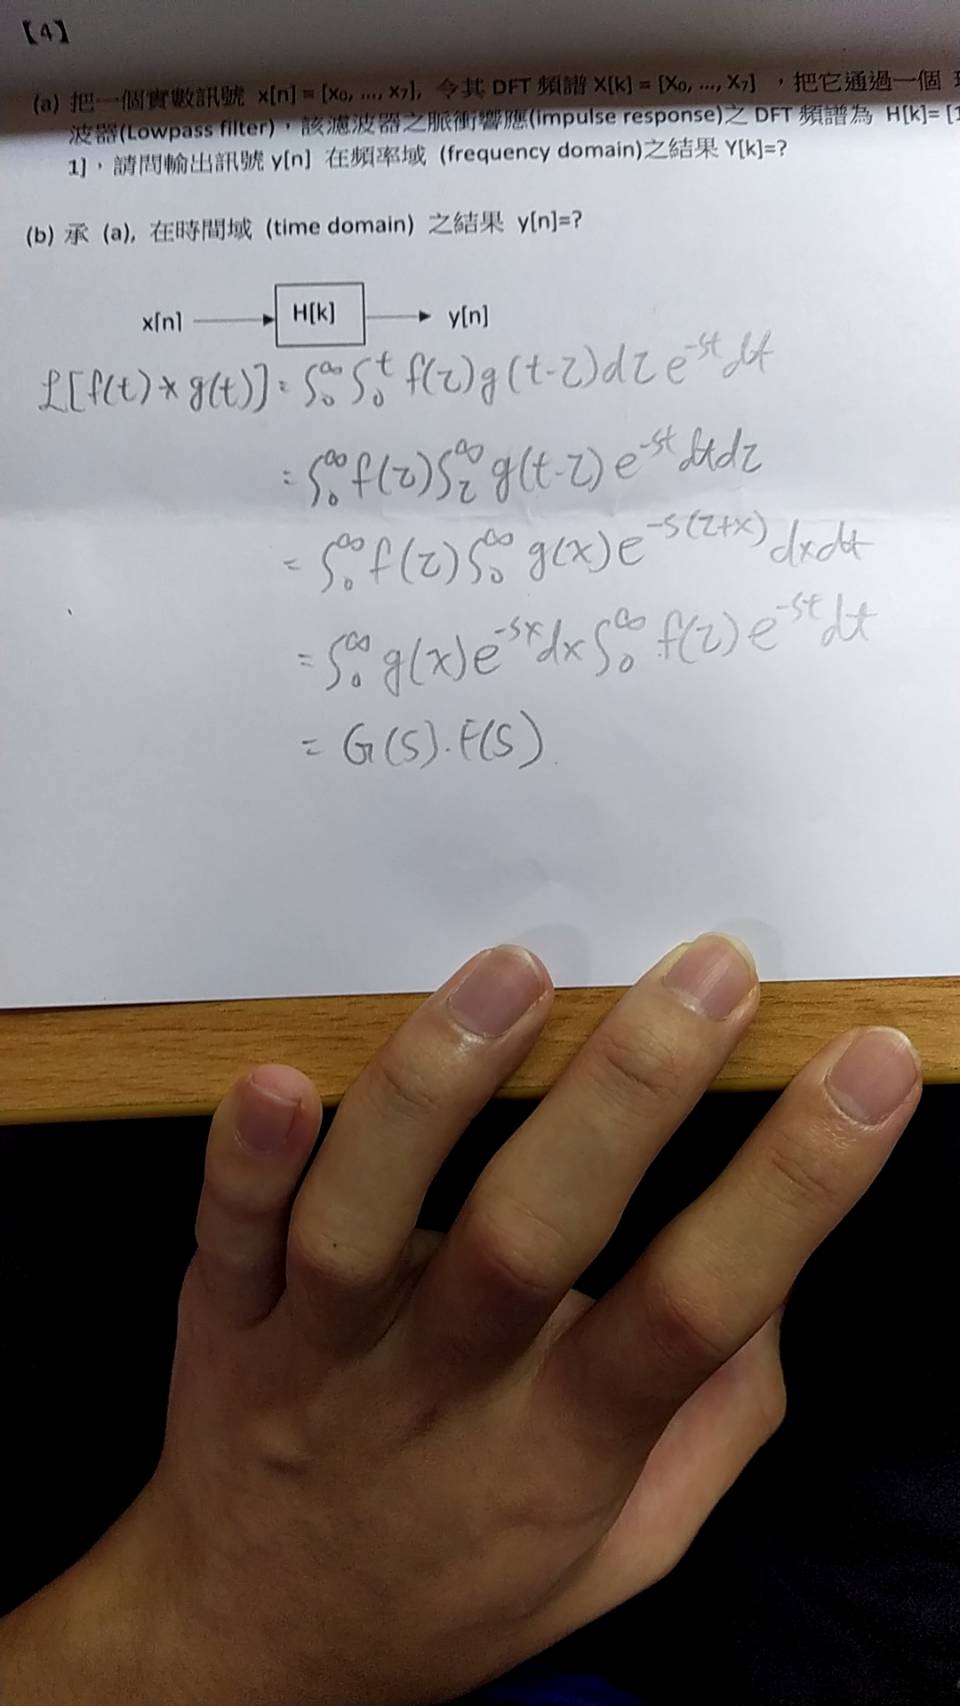 【4】
(a) 把一個實數訊號 x[n] = [x₀, ..., x₇], 令其 DFT 頻譜 X[k] = [X₀, ..., X₇] ，把它通過一個
波器(Lowpass filter)，該濾波器之脈衝響應(impulse response)之 DFT 頻譜為 H[k]= [1
1]，請問輸出訊號 y[n] 在頻率域 (frequency domain)之結果 Y[k]=?
(b) 承 (a), 在時間域 (time domain) 之結果 y[n]=?
x[n] H[k] y[n]
ℒ[f(t)*g(t)] = ∫₀^∞ ∫₀^t f(τ)g(t-τ)dτ e^{-st} dt
= ∫₀^∞ f(τ) ∫_τ^∞ g(t-τ) e^{-st} dtdτ
= ∫₀^∞ f(τ) ∫₀^∞ g(x) e^{-s(τ+x)} dxdt
= ∫₀^∞ g(x) e^{-sx} dx ∫₀^∞ f(τ) e^{-st} dt
= G(S).F(S)